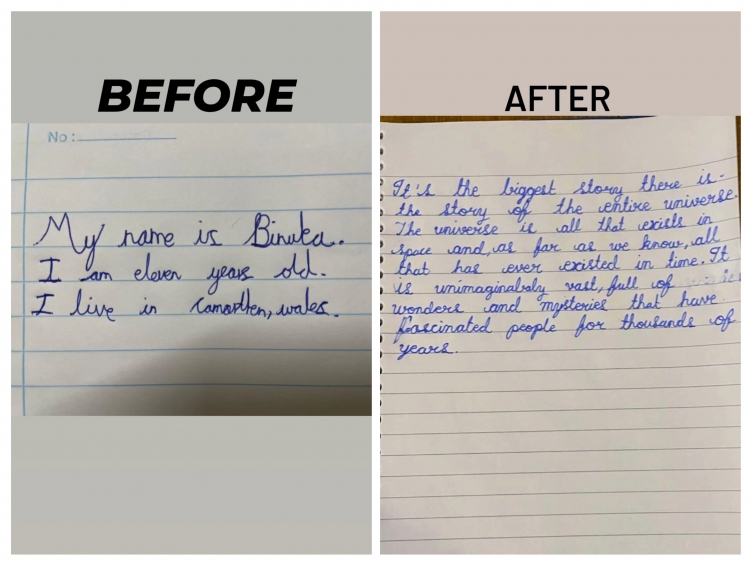 BEFORE
No:
My name is Binuka.
I am eleven years old.
I live in Camarthen, wales.
AFTER
It's the biggest story there is-
the story of the entire universe.
The universe is all that exists in
space and, as far as we know, all
that has ever existed in time. It
is unimaginabaly vast, full of
wonders and mysteries that have
fascinated people for thousands of
years.